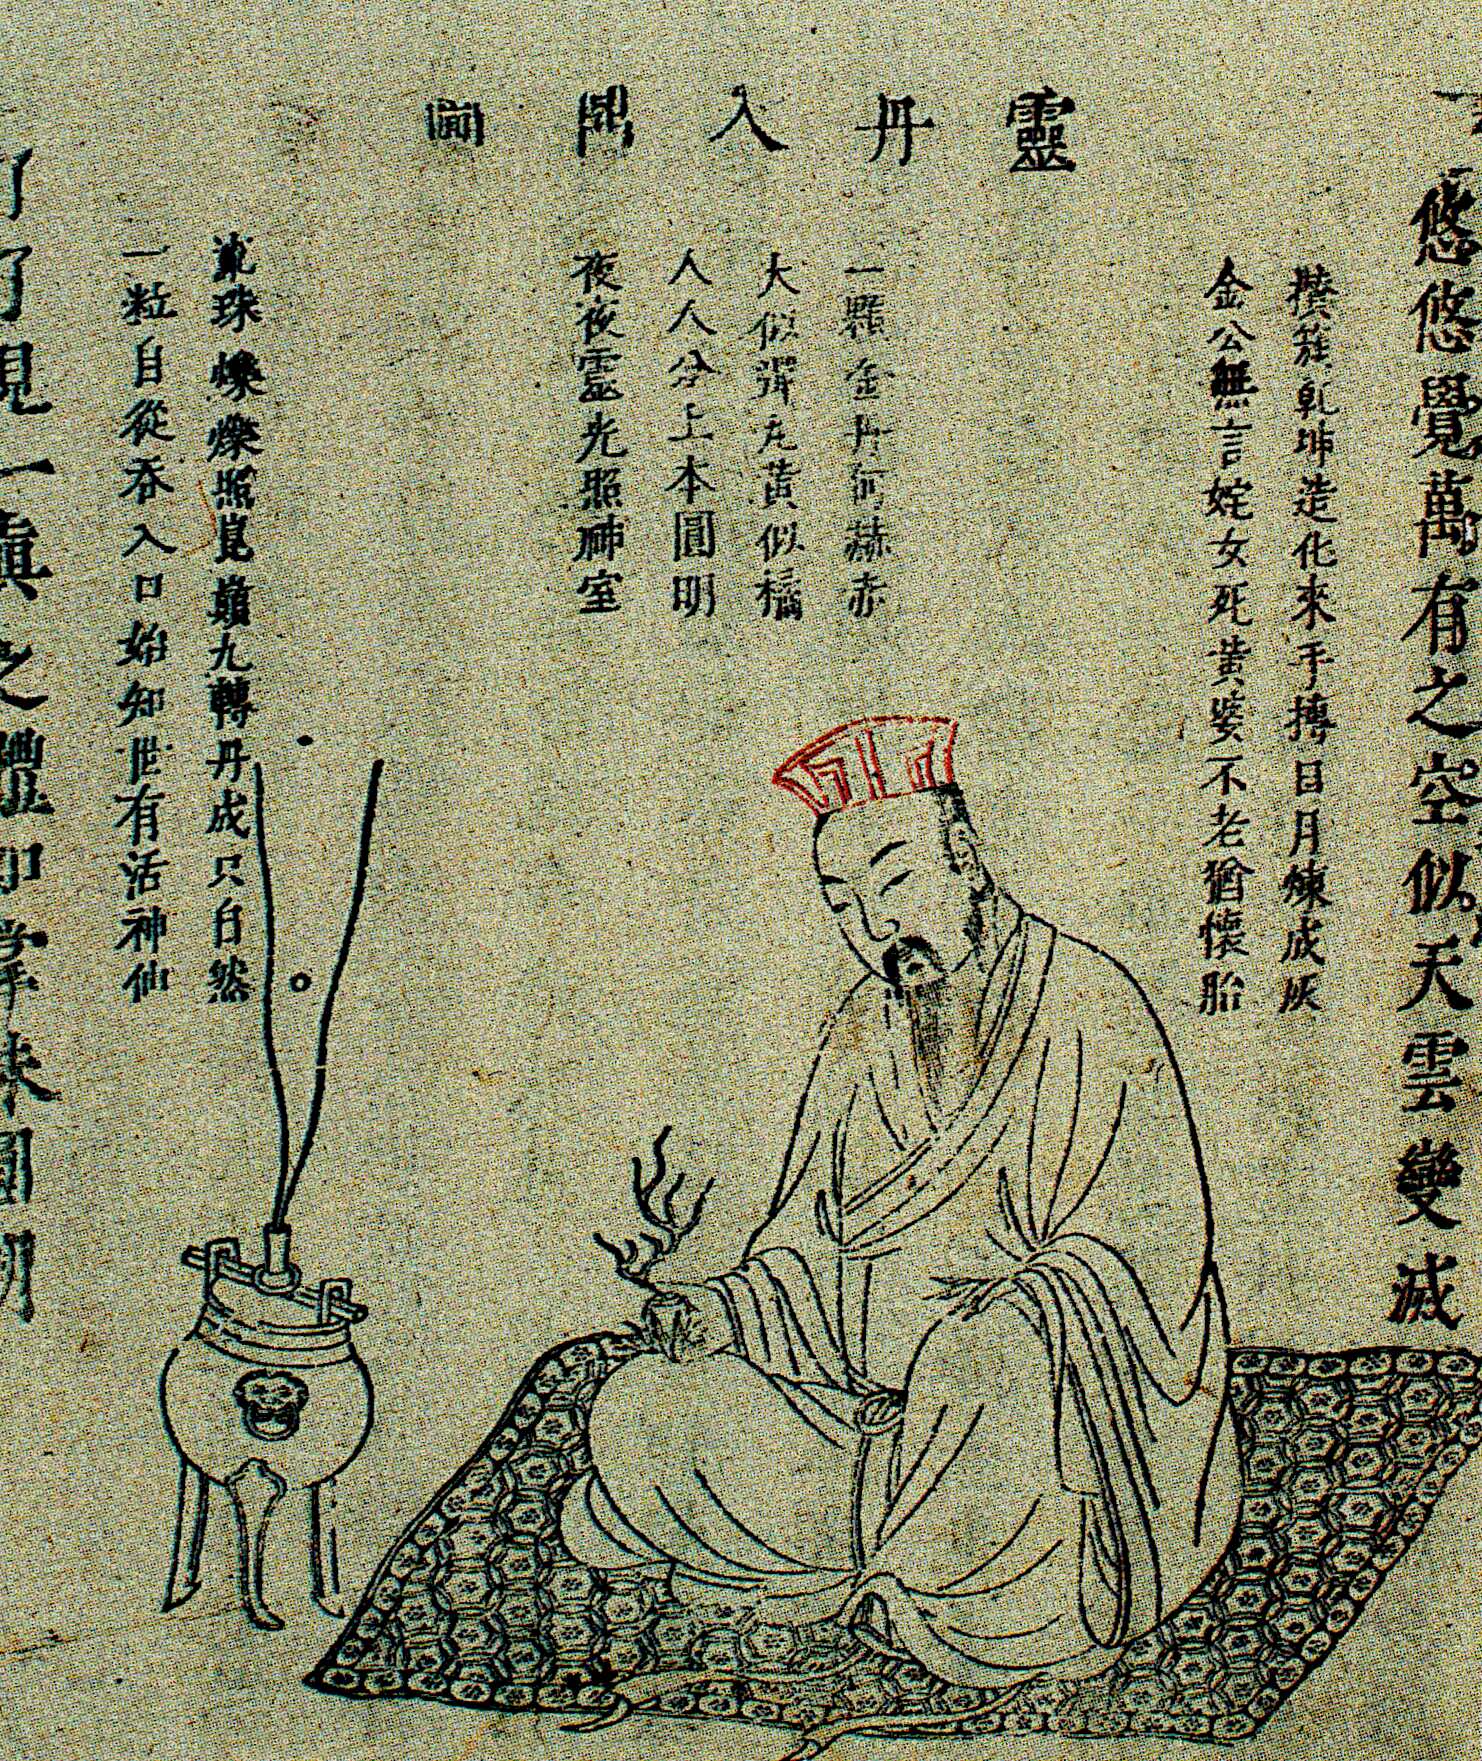 靈丹入鼎圖
悠悠覺萬有之空似天雲變滅
攅蔟乾坤造化來手摶日月煉成灰
金公無言姹女死黃婆不老猶懷胎
一顆金丹何赫赤
大似彈丸黃似橘
人人分上本圓明
夜夜靈光照神室
珠爍爍照崑巔九轉丹成只自然
一粒自從吞入口始知世有活神仙
了了見一真之體如掌珠圓明